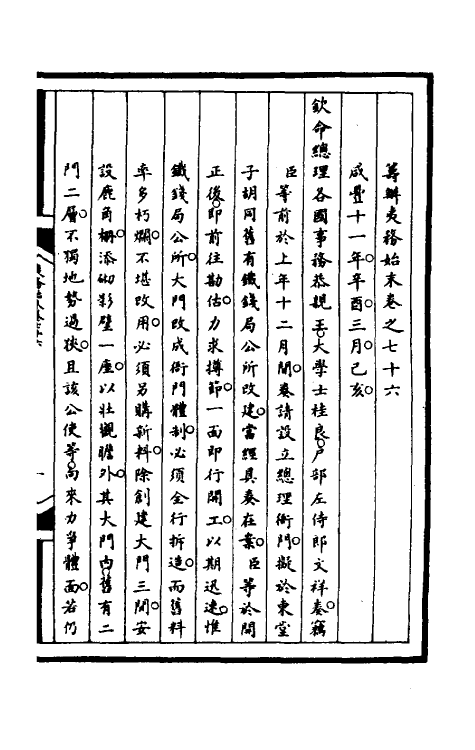 籌辦夷務始末卷之七十六
咸豐十一年辛酉三月己亥
欽命總理各國事務恭親王大學士桂良戶部左侍郎文祥奏竊
臣等前於上年十二月間奏請設立總理衙門擬於東堂
子胡同舊有鐵錢局公所改建當經具奏在案臣等於開
正後即前往勘估力求撙節一面即行開工以期迅速惟
鐵錢局公所大門改成衙門體制必須全行拆造而舊料
率多朽爛不堪改用必須另購新料除創建大門三間安
設鹿角柵添砌影壁一座以壯觀瞻外其大門內舊有二
門二層不獨地勢過狹且該公使等向來力爭體面若仍